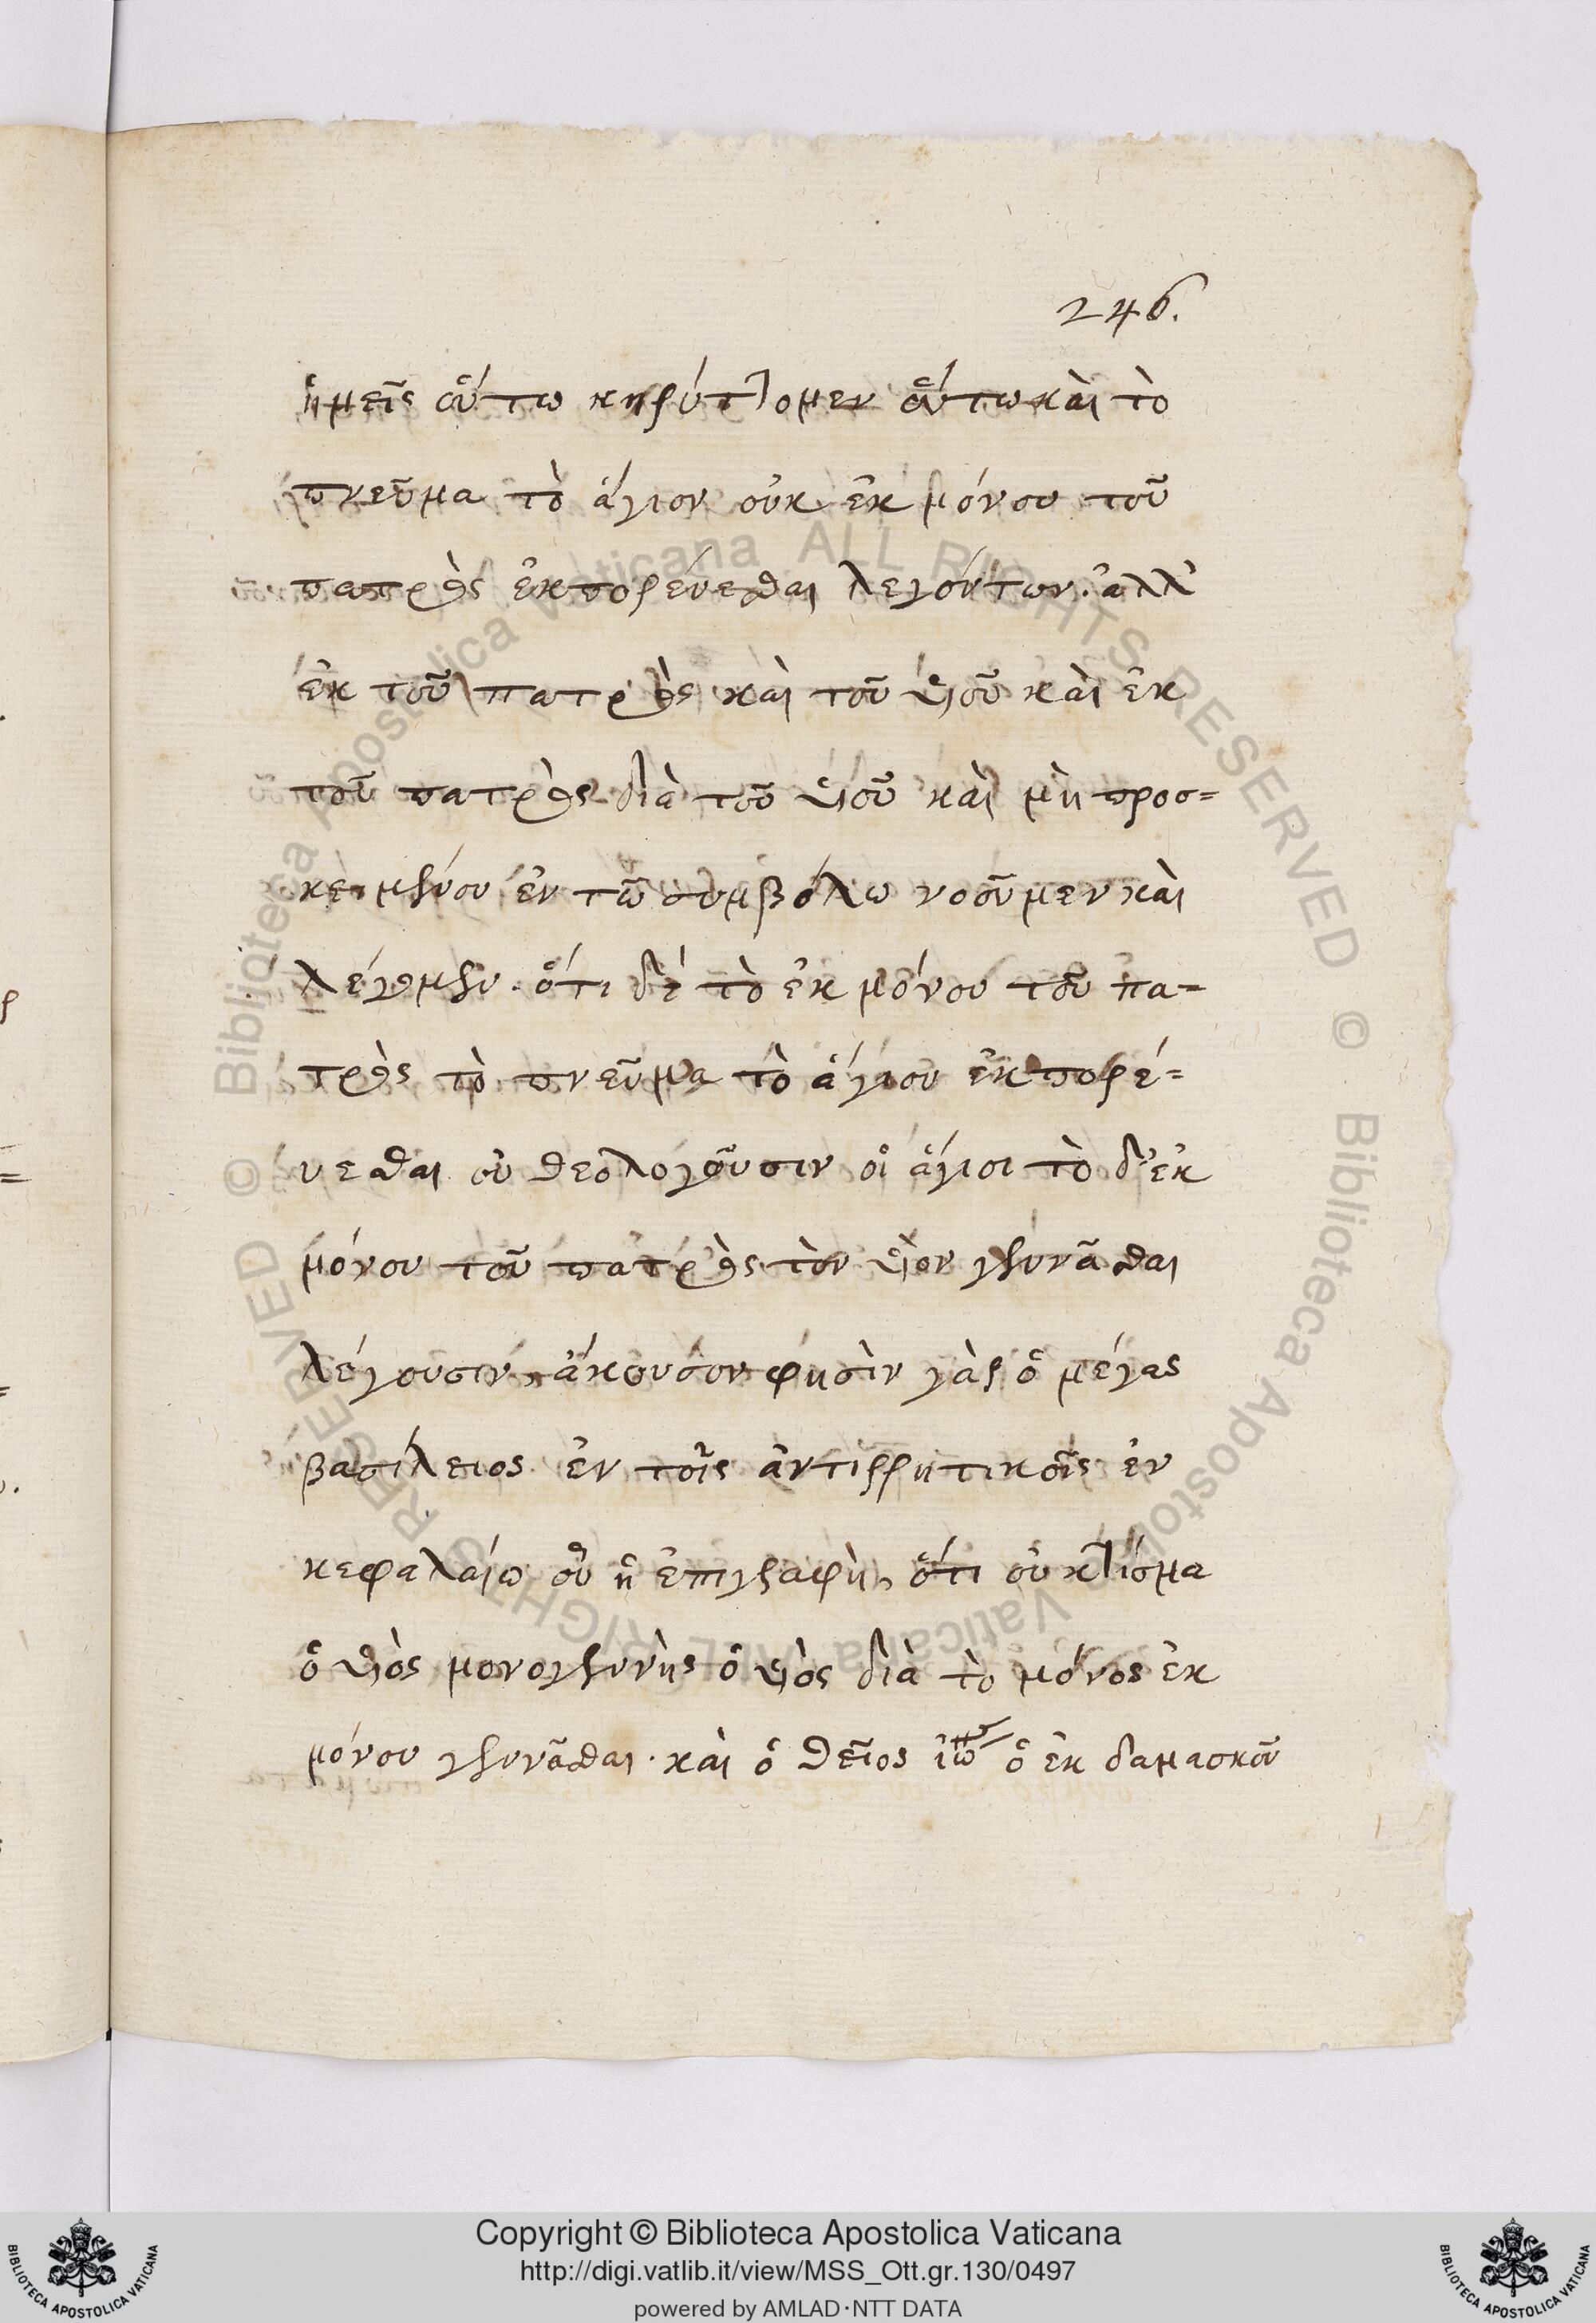 246.
ἡμεῖς οὕτω κηρύττομεν οὕτω καὶ τὸ
πνεῦμα τὸ ἅγιον οὐκ ἐκ μόνου τοῦ
πατρὸς ἐκπορεύεσθαι λεγόντων. ἀλλ'
ἐκ τοῦ πατρὸς καὶ τοῦ υἱοῦ καὶ ἐκ
τοῦ πατρὸς διὰ τοῦ υἱοῦ καὶ μὴ προσ=
κειμένου ἐν τῶ συμβόλω νοοῦμεν καὶ
λέγομεν. ὅτι δὲ τὸ ἐκ μόνου τοῦ πα=
τρὸς τὸ πνεῦμα τὸ ἅγιον ἐκπορέ=
υεσθαι οὐ θεολογοῦσιν οἱ ἅγιοι τὸ δ' ἐκ
μόνου τοῦ πατρὸς τὸν υἱὸν γεννᾶσθαι
λέγουσιν, ἄκουσον φησὶν γὰρ ὁ μέγας
βασίλειος ἐν τοῖς ἀντιρρητικοῖς ἐν
κεφαλαίω οὗ ἡ ἐπιγραφὴ, ὅτι οὐ κτίσμα
ὁ υἱὸς μονογενὴς ὁ υἱὸς διὰ τὸ μόνος ἐκ
μόνου γεννᾶσθαι. καὶ ὁ θεῖος ἰω ὁ ἐκ δαμασκοῦ
Copyright © Biblioteca Apostolica Vaticana
http://digi.vatlib.it/view/MSS_Ott.gr.130/0497
powered by AMLAD·NTT DATA
BIBLIOTECA APOSTOLICA VATICANA
BIBLIOTECA APOSTOLICA VATICANA
© Biblioteca Apostolica Vaticana ALL RIGHTS RESERVED
© Biblioteca Apostolica Vaticana ALL RIGHTS RESERVED